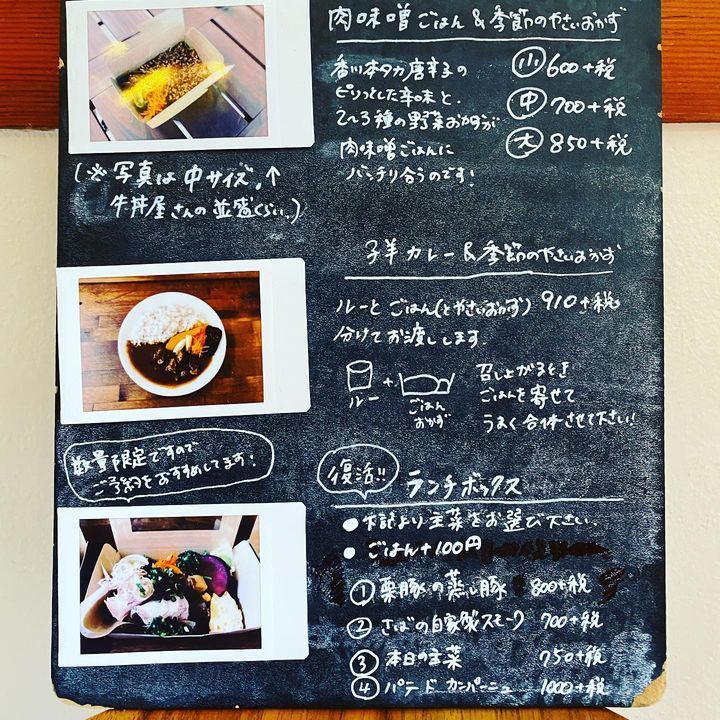 肉味噌ごはん&季節のやさいおかず
香川本タカ唐辛子の
ピリッとした辛味と、
2〜3種の野菜おかずが
肉味噌ごはんに
バッチリ合うのです!
小 600+税
中 700+税
大 850+税
(※写真は中サイズ。↑
牛丼屋さんの並盛くらい。)
子羊カレー&季節のやさいおかず
ルーとごはん(とやさいおかず) 910+税
分けてお渡しします。
ルー + ごはん
おかず
召し上がるとき
ごはんを寄せて
うまく合体させて下さい!
数量限定ですので
ご予約をおすすめしてます!
復活!! ランチボックス
●下記より主菜をお選び下さい。
●ごはん+100円
① 栗豚の蒸し豚 800+税
② さばの自家製スモーク 700+税
③ 本日の主菜 750+税
④ パテドカンパーニュ 1000+税